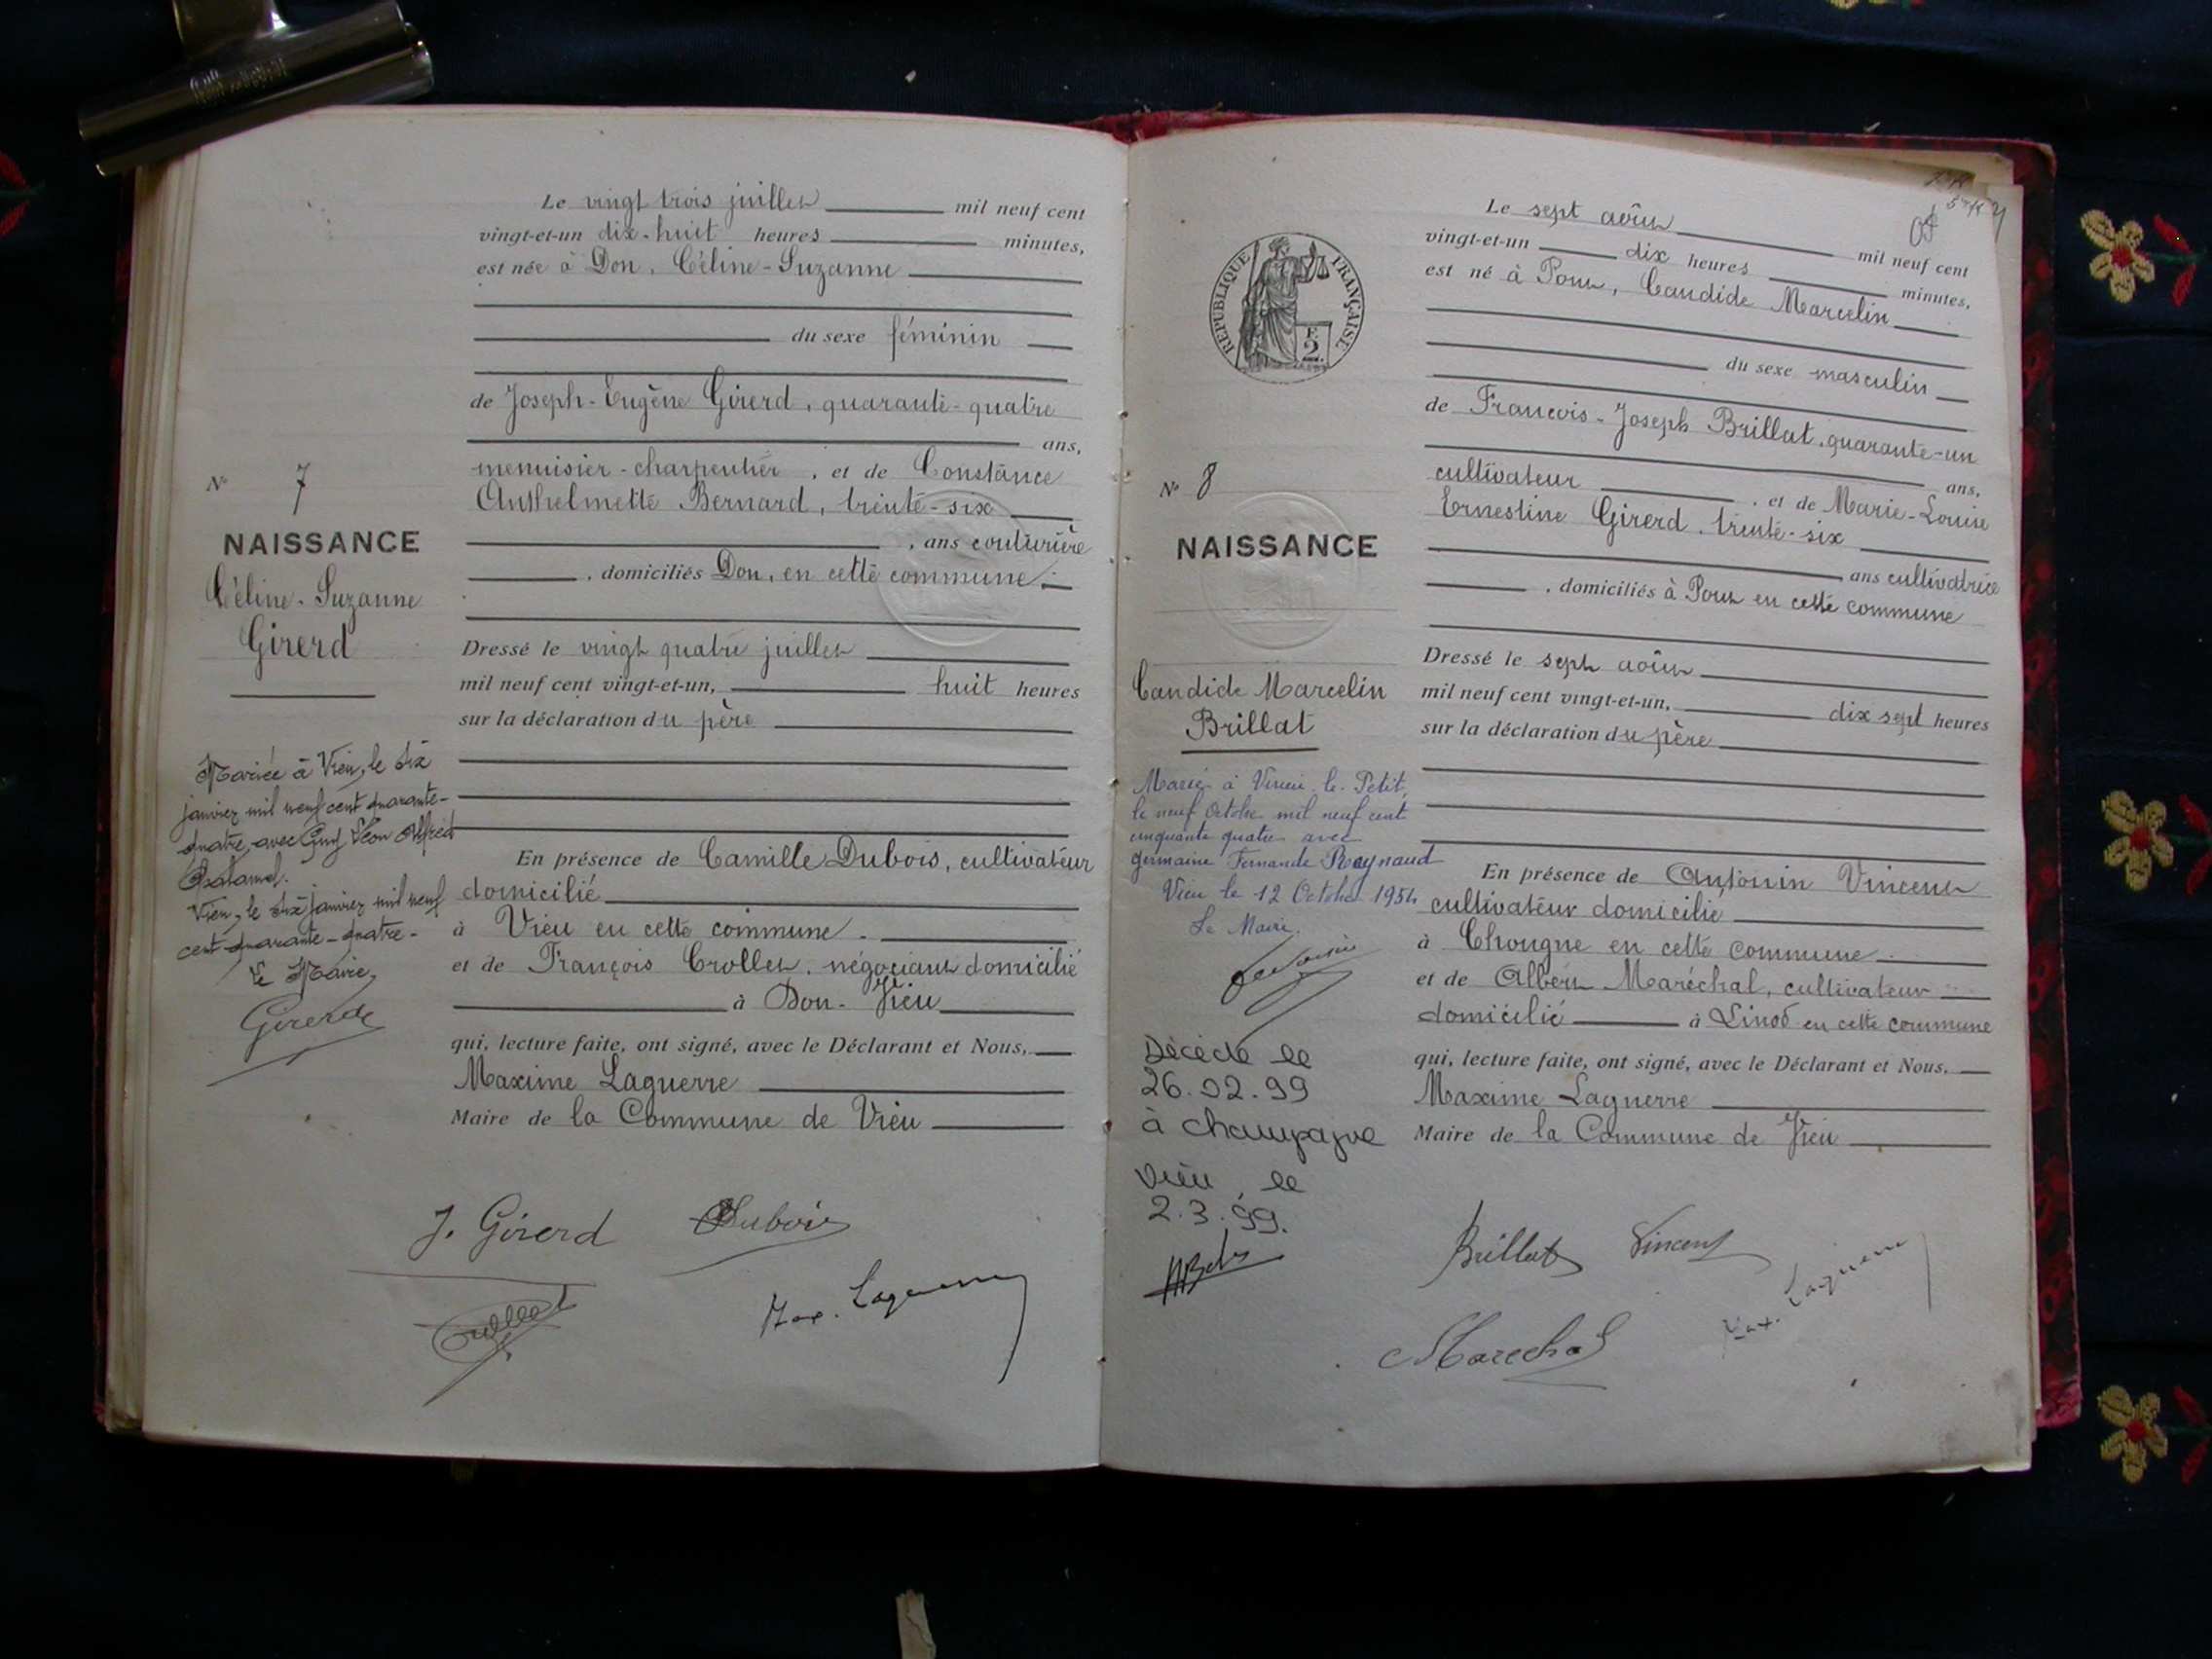 Le vingt trois juillet mil neuf cent
vingt-et-un dix-huit heures minutes,
est née à Don, Céline-Suzanne
du sexe féminin
de Joseph-Eugène Girerd, quarante-quatre
ans,
menuisier-charpentier, et de Constance
Anthelmette Bernard, trente-six
, ans couturière
, domiciliés Don, en cette commune.
Dressé le vingt quatre juillet
mil neuf cent vingt-et-un, huit heures
sur la déclaration du père
En présence de Camille Dubois, cultivateur
domicilié
à Vieu en cette commune.
et de François Crollet, négociant domicilié
à Don-Vieu
qui, lecture faite, ont signé, avec le Déclarant et Nous,
Maxime Laguerre
Maire de la Commune de Vieu
J. Girerd Dubois
Crollet Max. Laguerre
N° 7
NAISSANCE
Céline-Suzanne
Girerd
Mariée à Vieu, le six
janvier mil neuf cent quarante-
quatre, avec Guy Léon Alfred
Vieu, le six janvier mil neuf
cent quarante-quatre-
Le Maire,
Girerd
Le sept août mil neuf cent
vingt-et-un dix heures minutes,
est né à Pont, Candide Marcelin
du sexe masculin
de François-Joseph Brillat, quarante-un
ans,
cultivateur, et de Marie-Louise
Ernestine Girerd, trente-six
ans cultivatrice
, domiciliés à Pont en cette commune
Dressé le sept août
mil neuf cent vingt-et-un, dix sept heures
sur la déclaration du père
En présence de Antonin Vincent
cultivateur domicilié
à Chongne en cette commune
et de Albert Maréchal, cultivateur
domicilié à Linod en cette commune
qui, lecture faite, ont signé, avec le Déclarant et Nous,
Maxime Laguerre
Maire de la Commune de Vieu
Brillat Vincent
Marechal Max. Laguerre
RÉPUBLIQUE FRANÇAISE
F.
2
N° 8
NAISSANCE
Candide Marcelin
Brillat
Marié à Virieu-le-Petit,
le neuf Octobre mil neuf cent
cinquante quatre avec
germaine Fernande Raynaud
Vieu le 12 Octobre 1954
Le Maire.
Décédé le
26.02.99
à Champagne
Vieu, le
2.3.99.